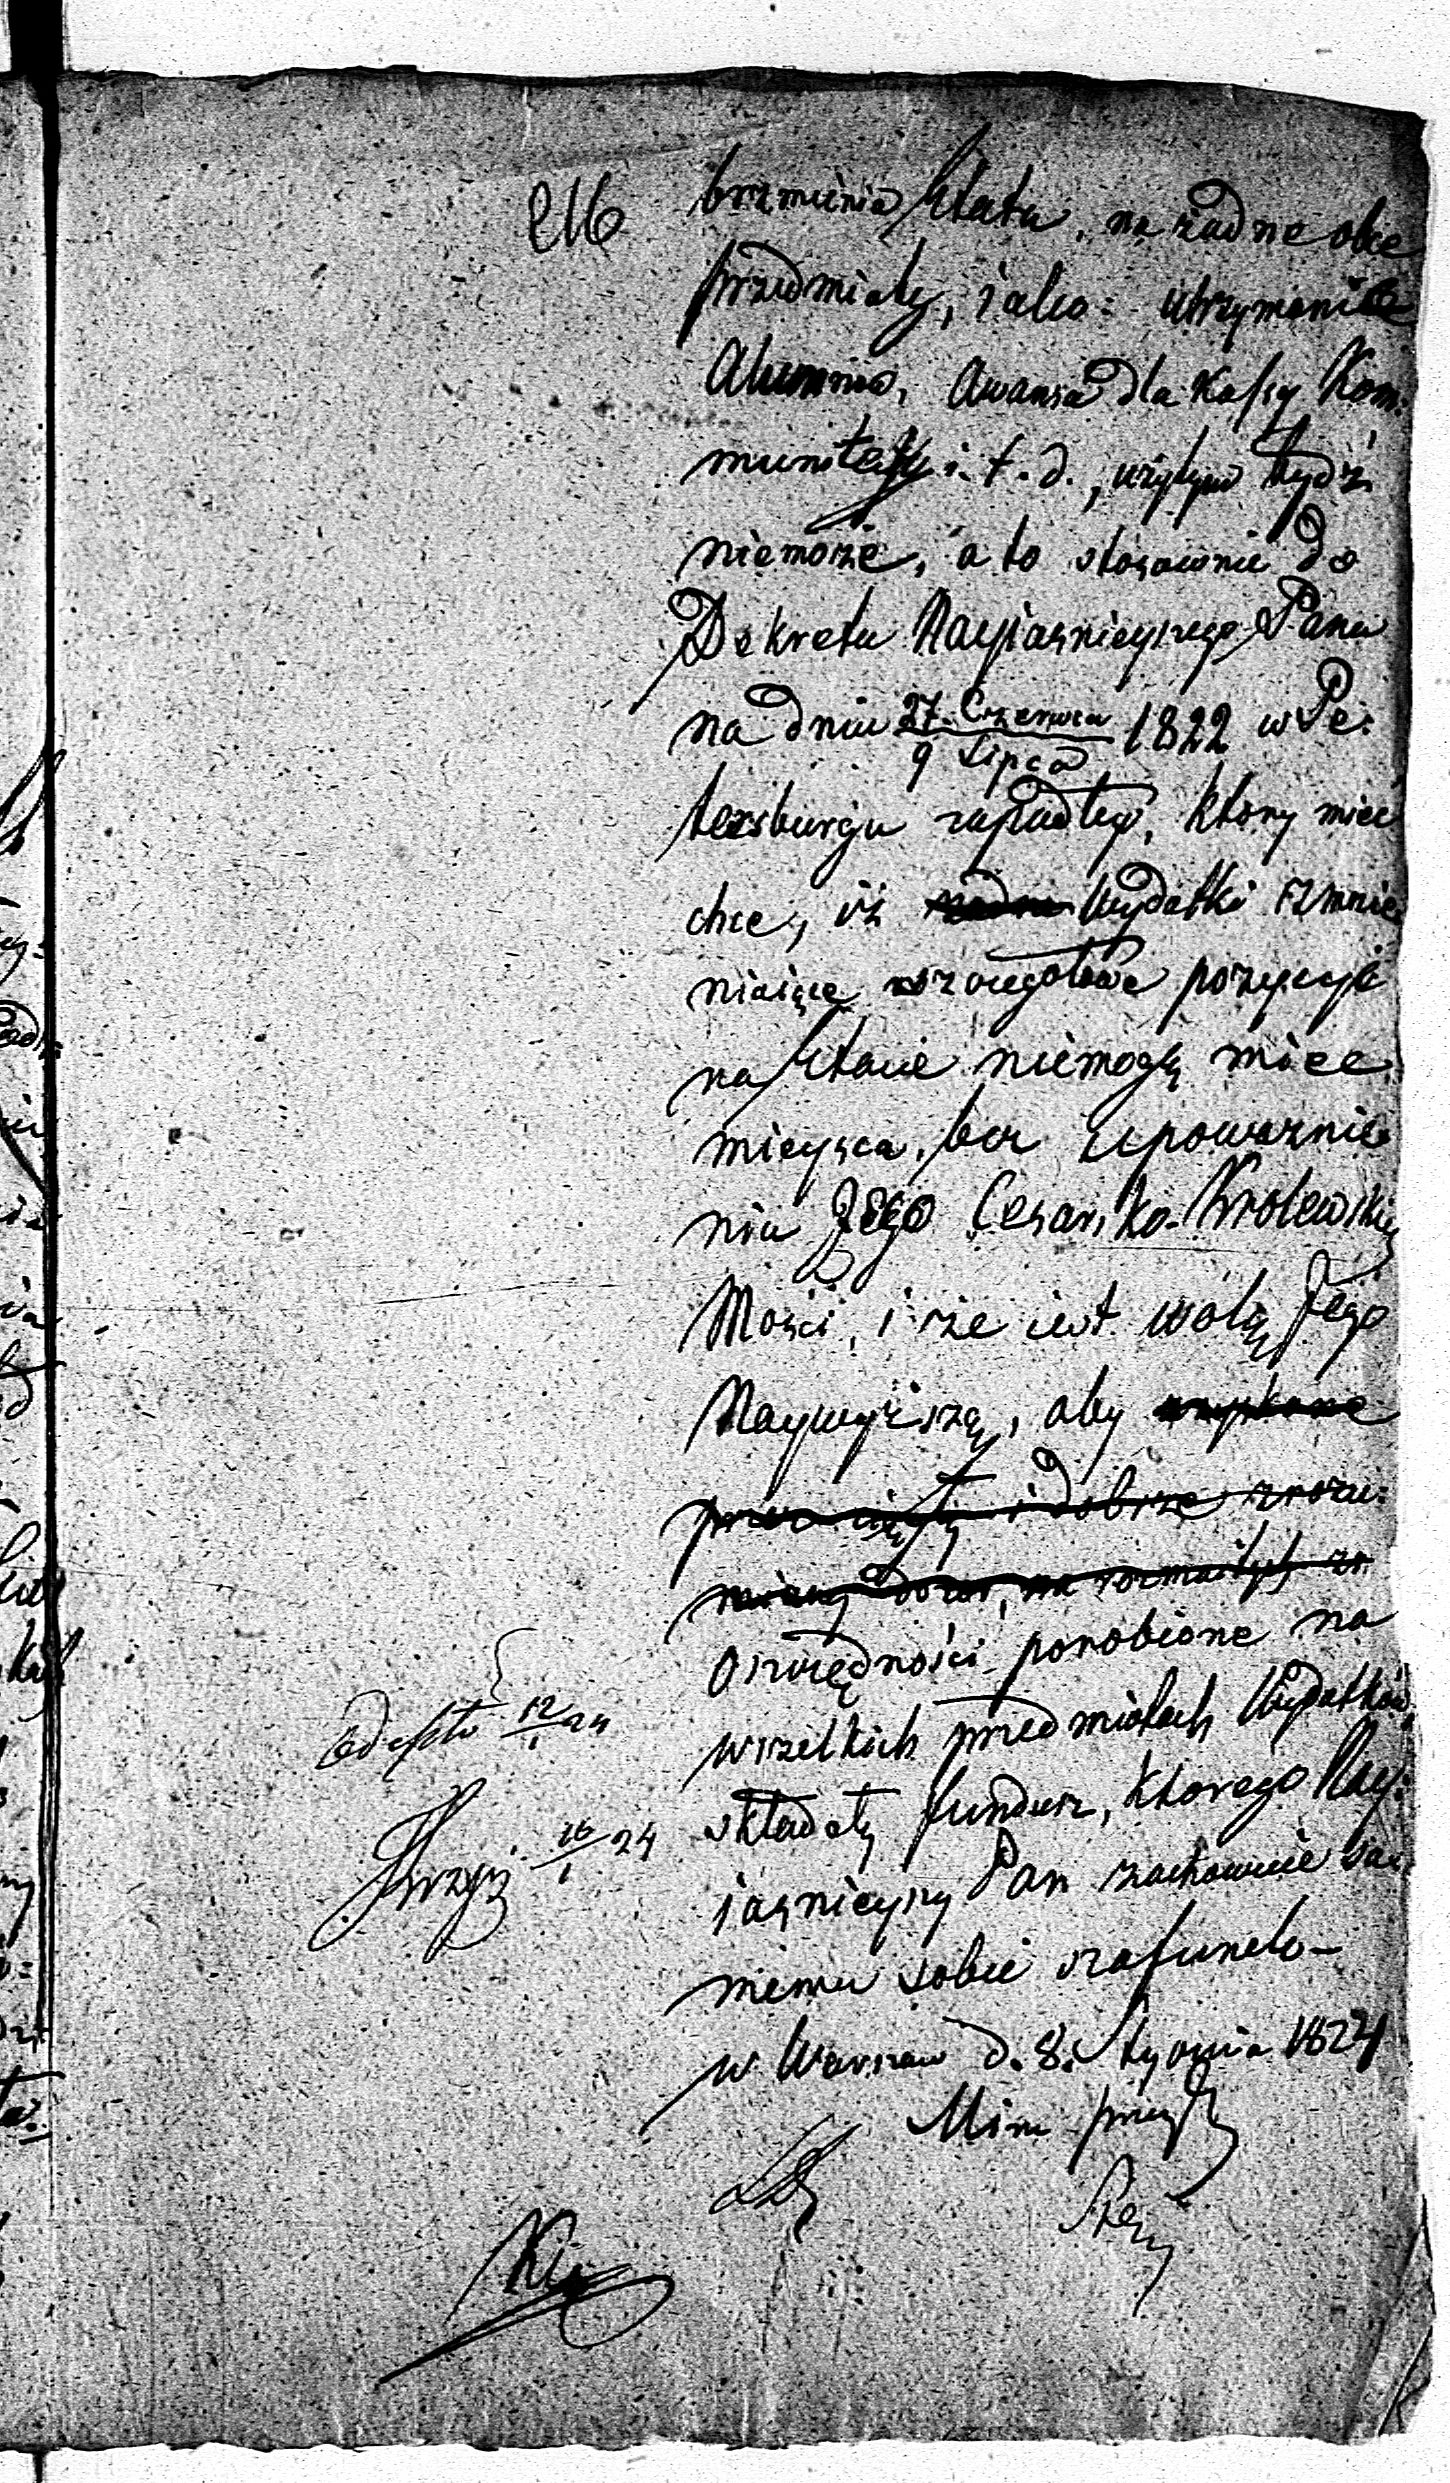 216
brzmienia Etatu, na żadne obce
przedmioty, iako: utrzymanie
Alumnów, Awansa dla Kassy Kom:
munitatis i. t. d., użytym bydź
niemoże, a to stosownie do
Dekretu Nayiaśnieyszego Pana
na dniu 27. Czerwca / 9 Lipca 1822 w Pe:
tersburgu zapadłego, który mieć
chce, iż żadne Wydatki zmnie
niaiące szczegołowe pozycye
na Etacie niemogą mieć
mieysca, bez Upoważnie
nia Jego Cesarsko-Krolewskiey
Mości, i że iest wolą Jego
Naywyższą, aby
i dobrze zrozu:
miany dozór, na rozmaitych
oszczędności porobione na
wszelkich przedmiotach Wydatków,
składały fundusz, ktorego Nay:
iaśnieyszy Pan zachowuie sa
memu sobie szafunek.–
w Warszawie d. 8. Stycznia 1824
Min prezy
12/1 24
16/1 24